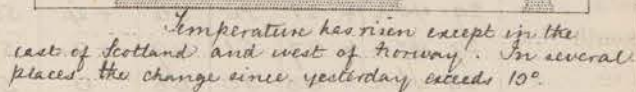 Temperature has risen except in the
east of Scotland and west of Norway. In several
places the change since yesterday exceeds 10°.